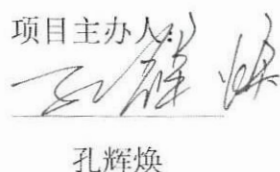 项目主办人:
孔辉焕
孔辉焕